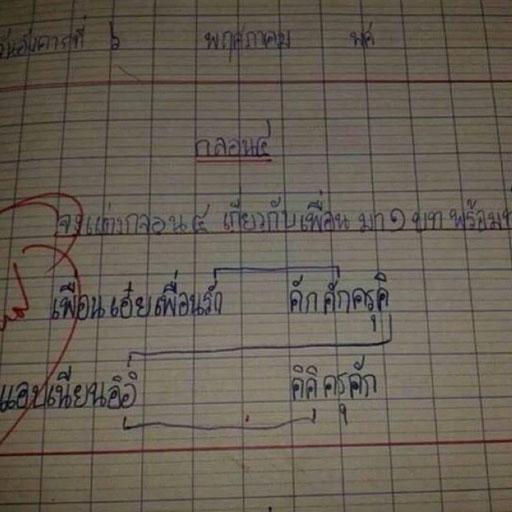 วันอังคารที่ ๖ พฤษภาคม พศ
กลอน๔
จงแต่งกลอน๔ เกี่ยวกับเพื่อน มา ๑ บท พร้อม
เพื่อนเอ๋ยเพื่อนรัก คักคักครุคิ
แอบเนียนอิอิ คิคิครุคัก